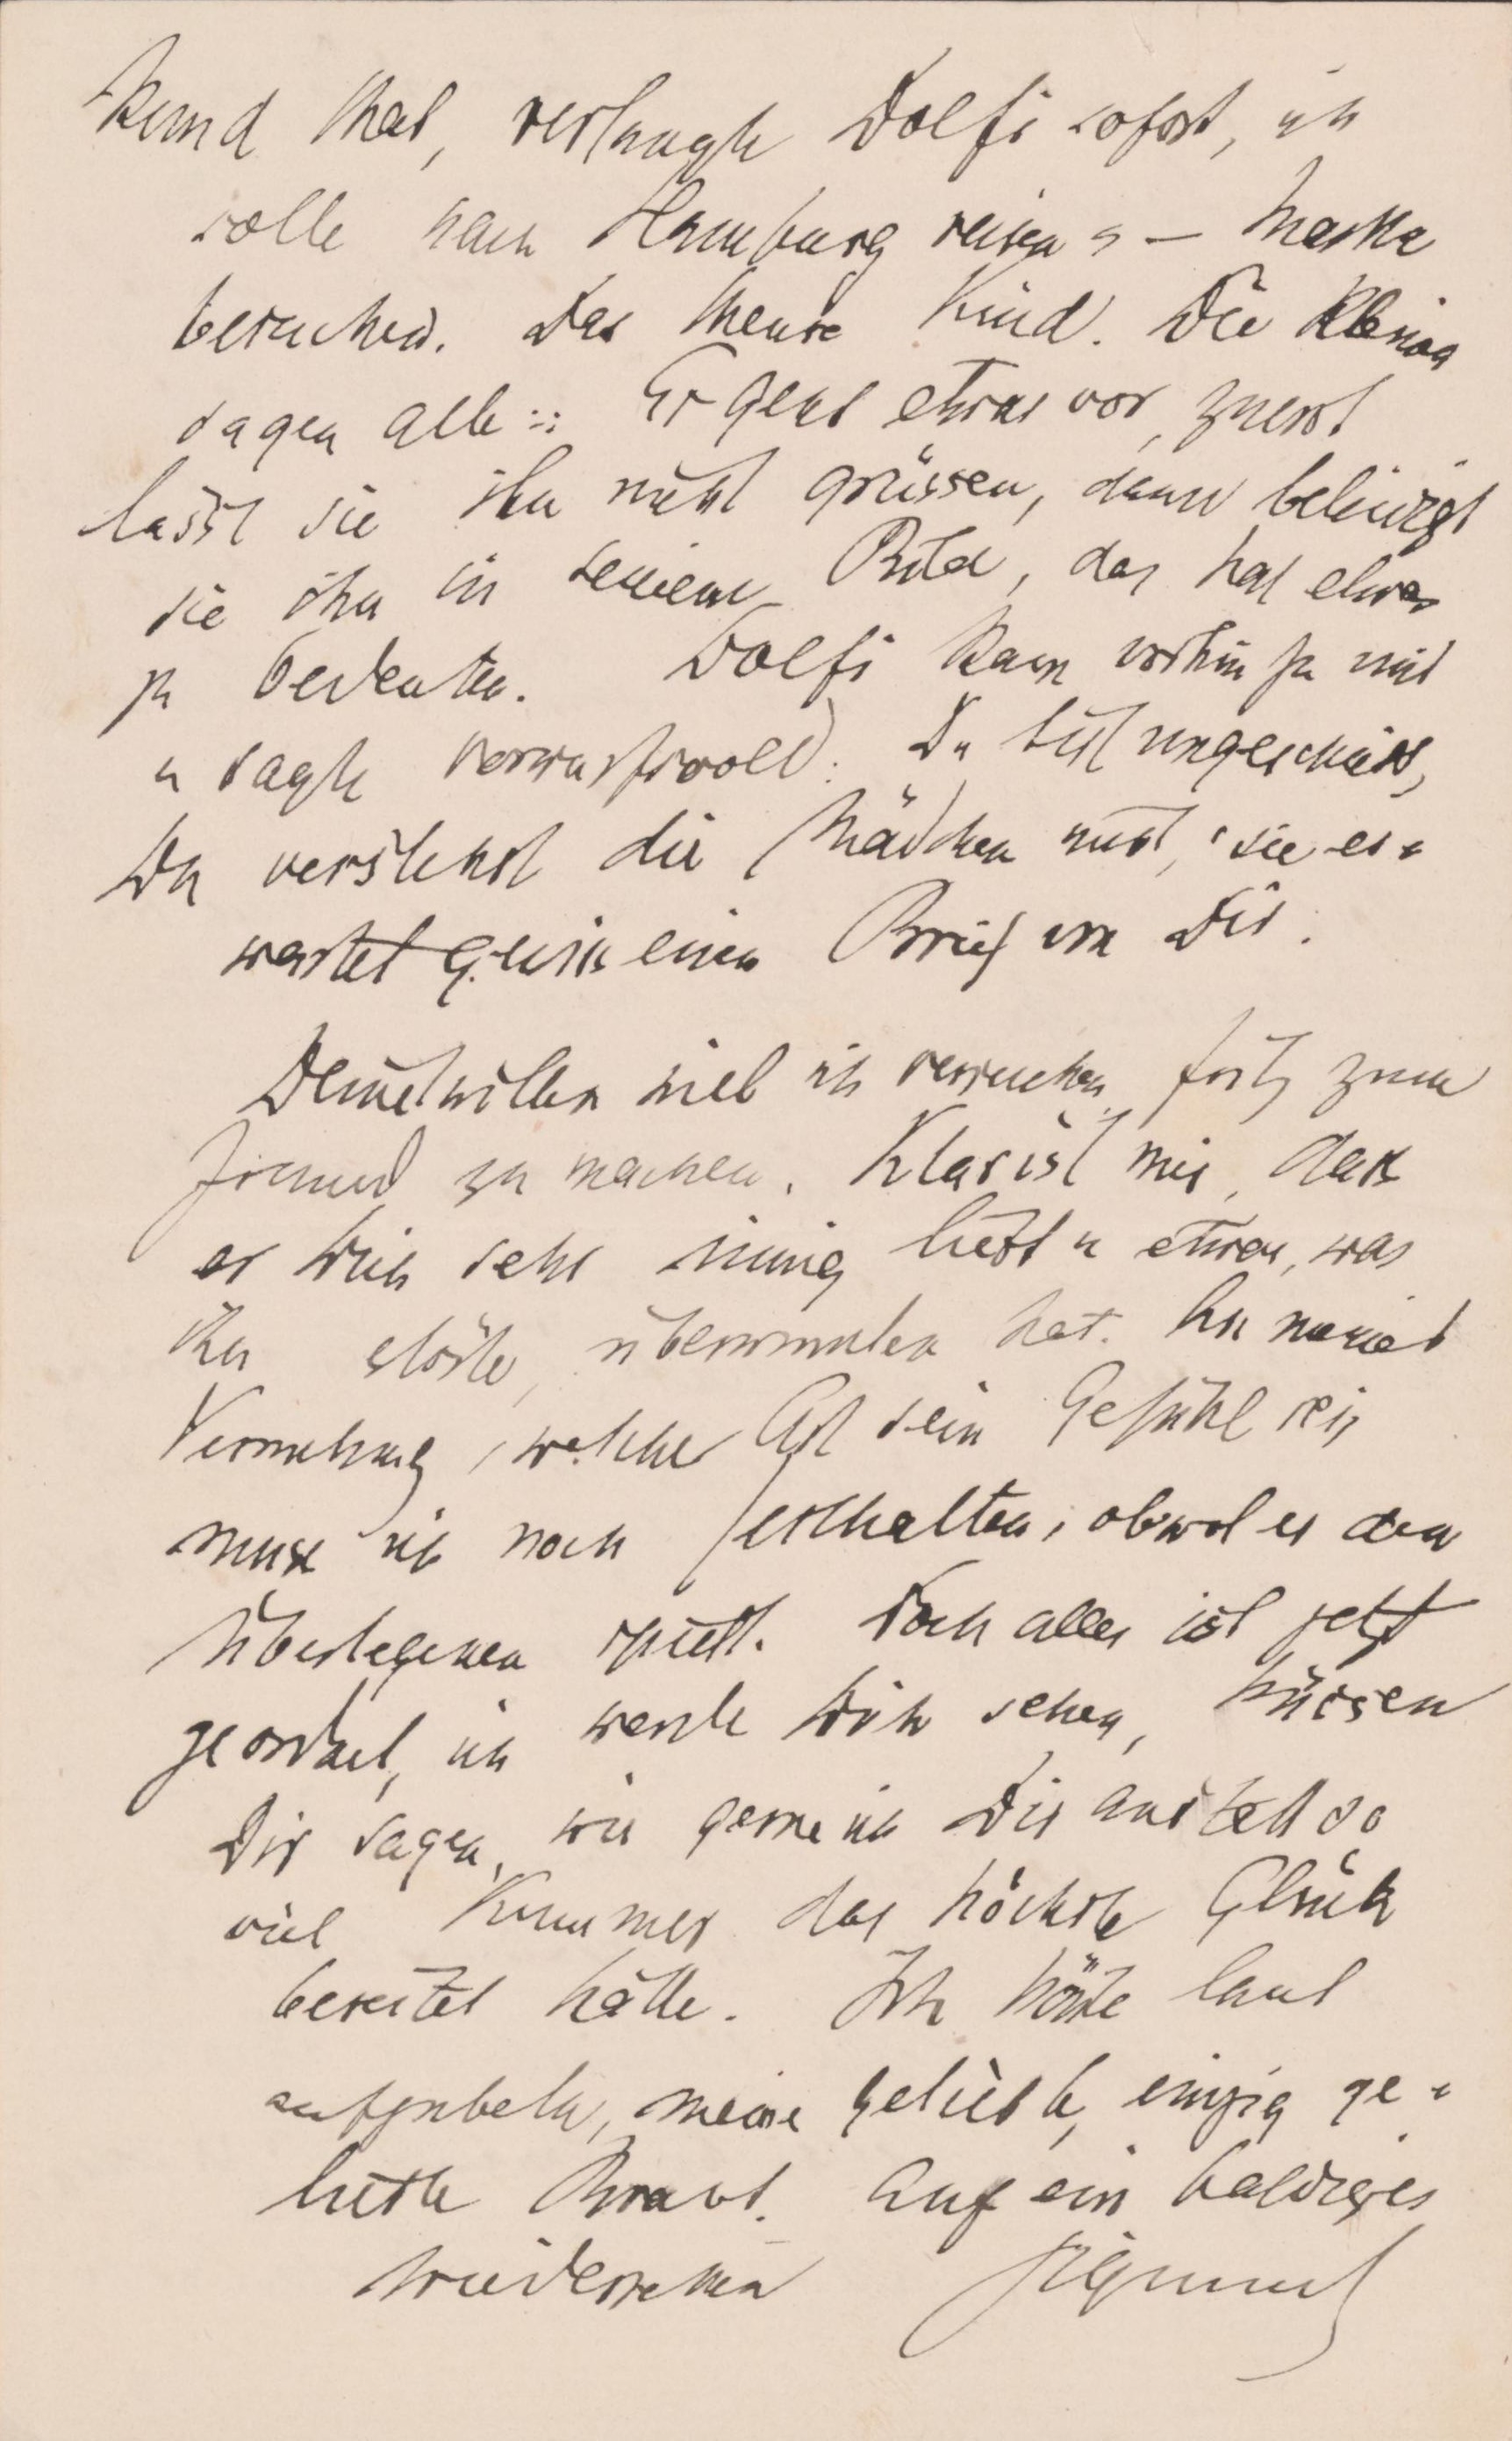 kund that, verlangte Dolfi sofort, ich
solle nach Hamburg reisen u – Martha
besuchen. Das theure Kind. Die Kleinen
sagen alle: Es geht etwas vor, zuerst
lässt sie ihn nicht grüssen, dann beleidigt
sie ihn in seinem Bild, das hat etwas
zu bedeuten. Dolfi kam vorhin zu mir
u sagte vorwurfsvoll: Du bist ungeschickt,
Du verstehst die Mädchen nicht, sie er-
wartet gewiss einen Brief von Dir.
Deinetwillen will ich versuchen, Fritz zum
Freund zu machen. Klar ist mir, dass
er Dich sehr innig liebt u etwas, was
ihn störte, überwunden hat. An meiner
Vermuthung, welcher Art sein Gefühl sei,
muss ich noch festhalten, obwol er den
Überlegenen spielt. Doch alles ist jetzt
geordnet, ich werde Dich sehen, küssen
Dir sagen, wie gerne ich Dir anstatt so
viel Kummer das höchste Glück
bereitet hätte. Ich könnte laut
aufjubeln, meine geliebte, einzig ge-
liebte Braut. Auf ein baldiges
Wiedersehen Sigmund